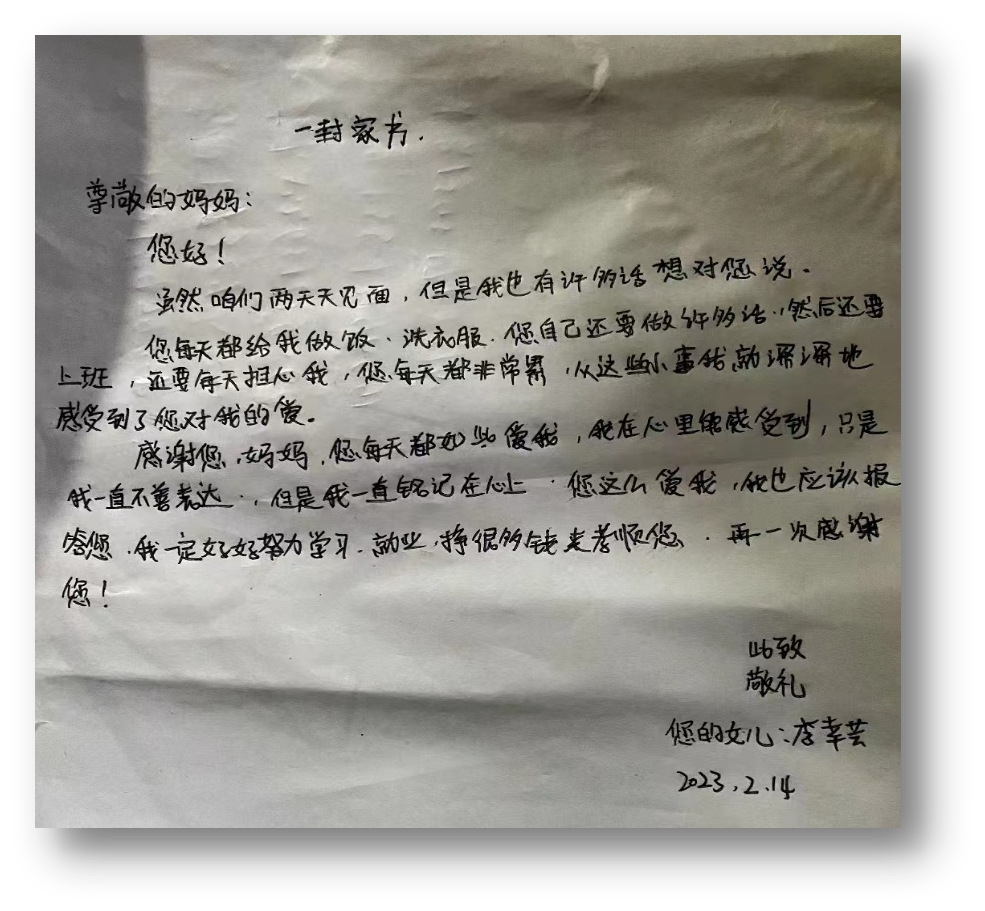 一封家书.
尊敬的妈妈：
您好！
虽然咱们两天天见面，但是我也有许多话想对您说。
您每天都给我做饭、洗衣服.您自己还要做许多活.，然后还要
上班，还要每天担心我，您每天都非常累，从这些小事我就深深地
感受到了您对我的爱。
感谢您，妈妈，您每天都如此爱我，我在心里能感受到，只是
我一直不善表达.，但是我一直铭记在心上.您这么爱我，我也应该报
答您.我一定好好努力学习.就业,挣很多钱来孝顺您.再一次感谢
您！
此致
敬礼
您的女儿：李幸芸
2023.2.14